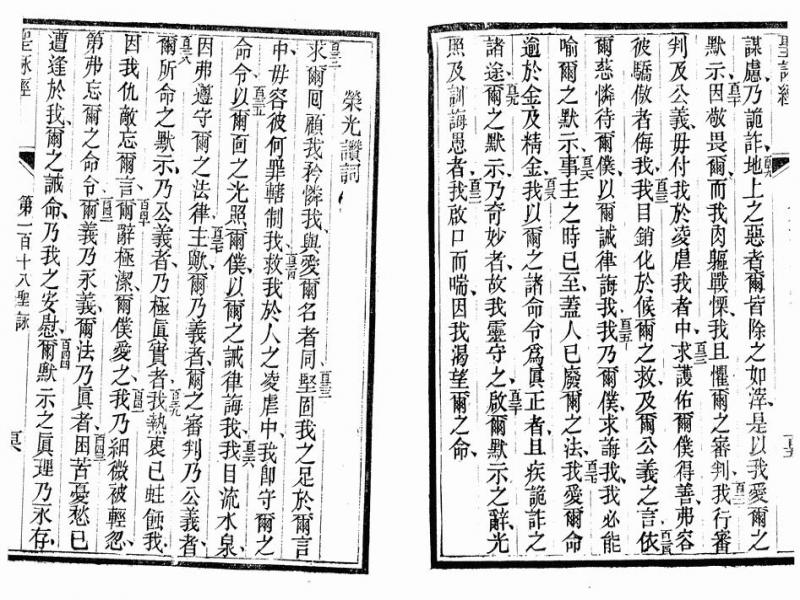 聖詠經
謀慮、乃詭詐、地上之惡者、爾皆除之如滓、是以我愛爾之
默示、因敬畏爾、而我肉軀戰慄、我且懼爾之審判、我行審
判及公義、毋付我於凌虐我者中、求護佑爾僕得善、弗容
彼驕傲者侮我、我目銷化於候爾之救、及爾公義之言、依
爾慈憐待爾僕、以爾誡律誨我、我乃爾僕、求誨我、我必能
喻爾之默示、事主之時已至、蓋人已廢爾之法、我愛爾命
逾於金及精金、我以爾之諸命令為眞正者、且疾詭詐之
諸途、爾之默示、乃奇妙者、故我靈守之、啟爾默示之辭、光
照及訓誨愚者、我啟口而喘、因我渴望爾之命、
榮光讚詞
求爾囘顧我、矜憐我、與愛爾名者同、堅固我之足於爾言
中、毋容彼何罪轄制我、救我於人之凌虐中、我卽守爾之
命令、以爾面之光照爾僕、以爾之誡律誨我、我目流水泉、
因弗遵守爾之法律、主歟、爾乃義者、爾之審判乃公義者、
爾所命之默示、乃公義者、乃極眞實者、我熱衷已蛀蝕我、
因我仇敵忘爾言、爾辭極潔、爾僕愛之、我乃細微被輕忽、
第弗忘爾之命令、爾義乃永義、爾法乃眞者、困苦憂愁已
遭逢於我、爾之誡命、乃我之安慰、爾默示之眞理乃永存、
聖詠經
第一百十八聖詠